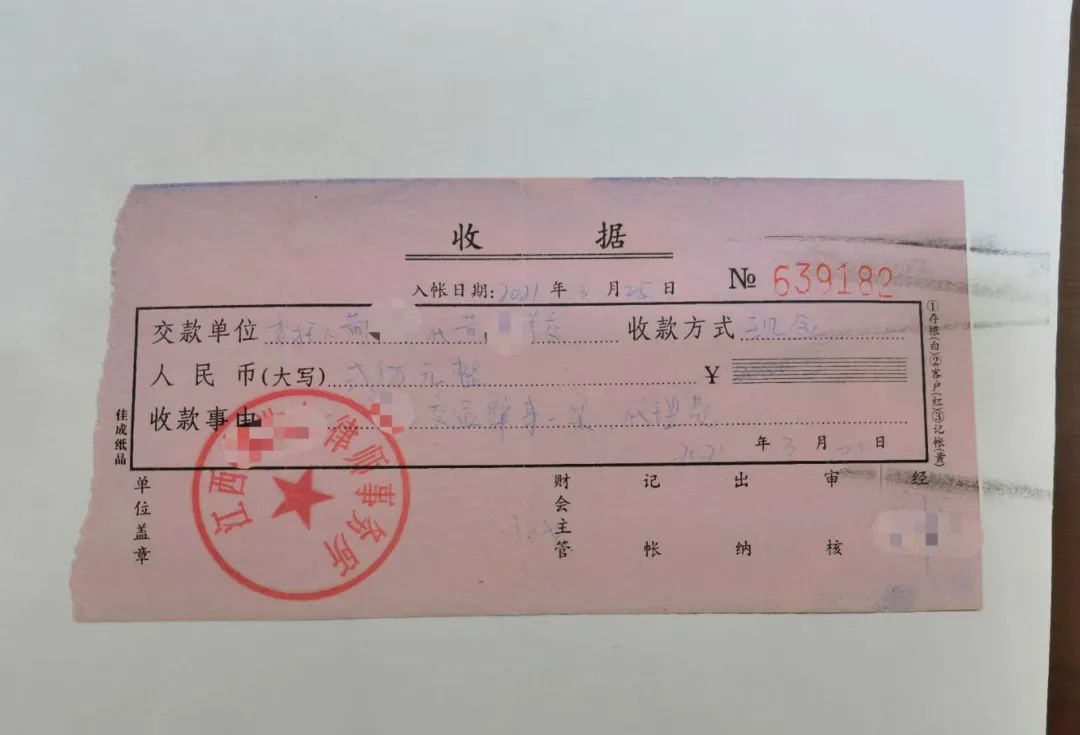 收 据
入帐日期:2021年3月25日
№ 639182
交款单位 委托人 收款方式 现金
人民币(大写) 贰仟元整 ¥
收款事由 交通肇事一案 代理费
2021年3月25日
①存根(白)②客户(红)③记帐(黄)
佳成纸品
单位盖章
财会主管
记帐
出纳
审核
经
江西 律师事务所